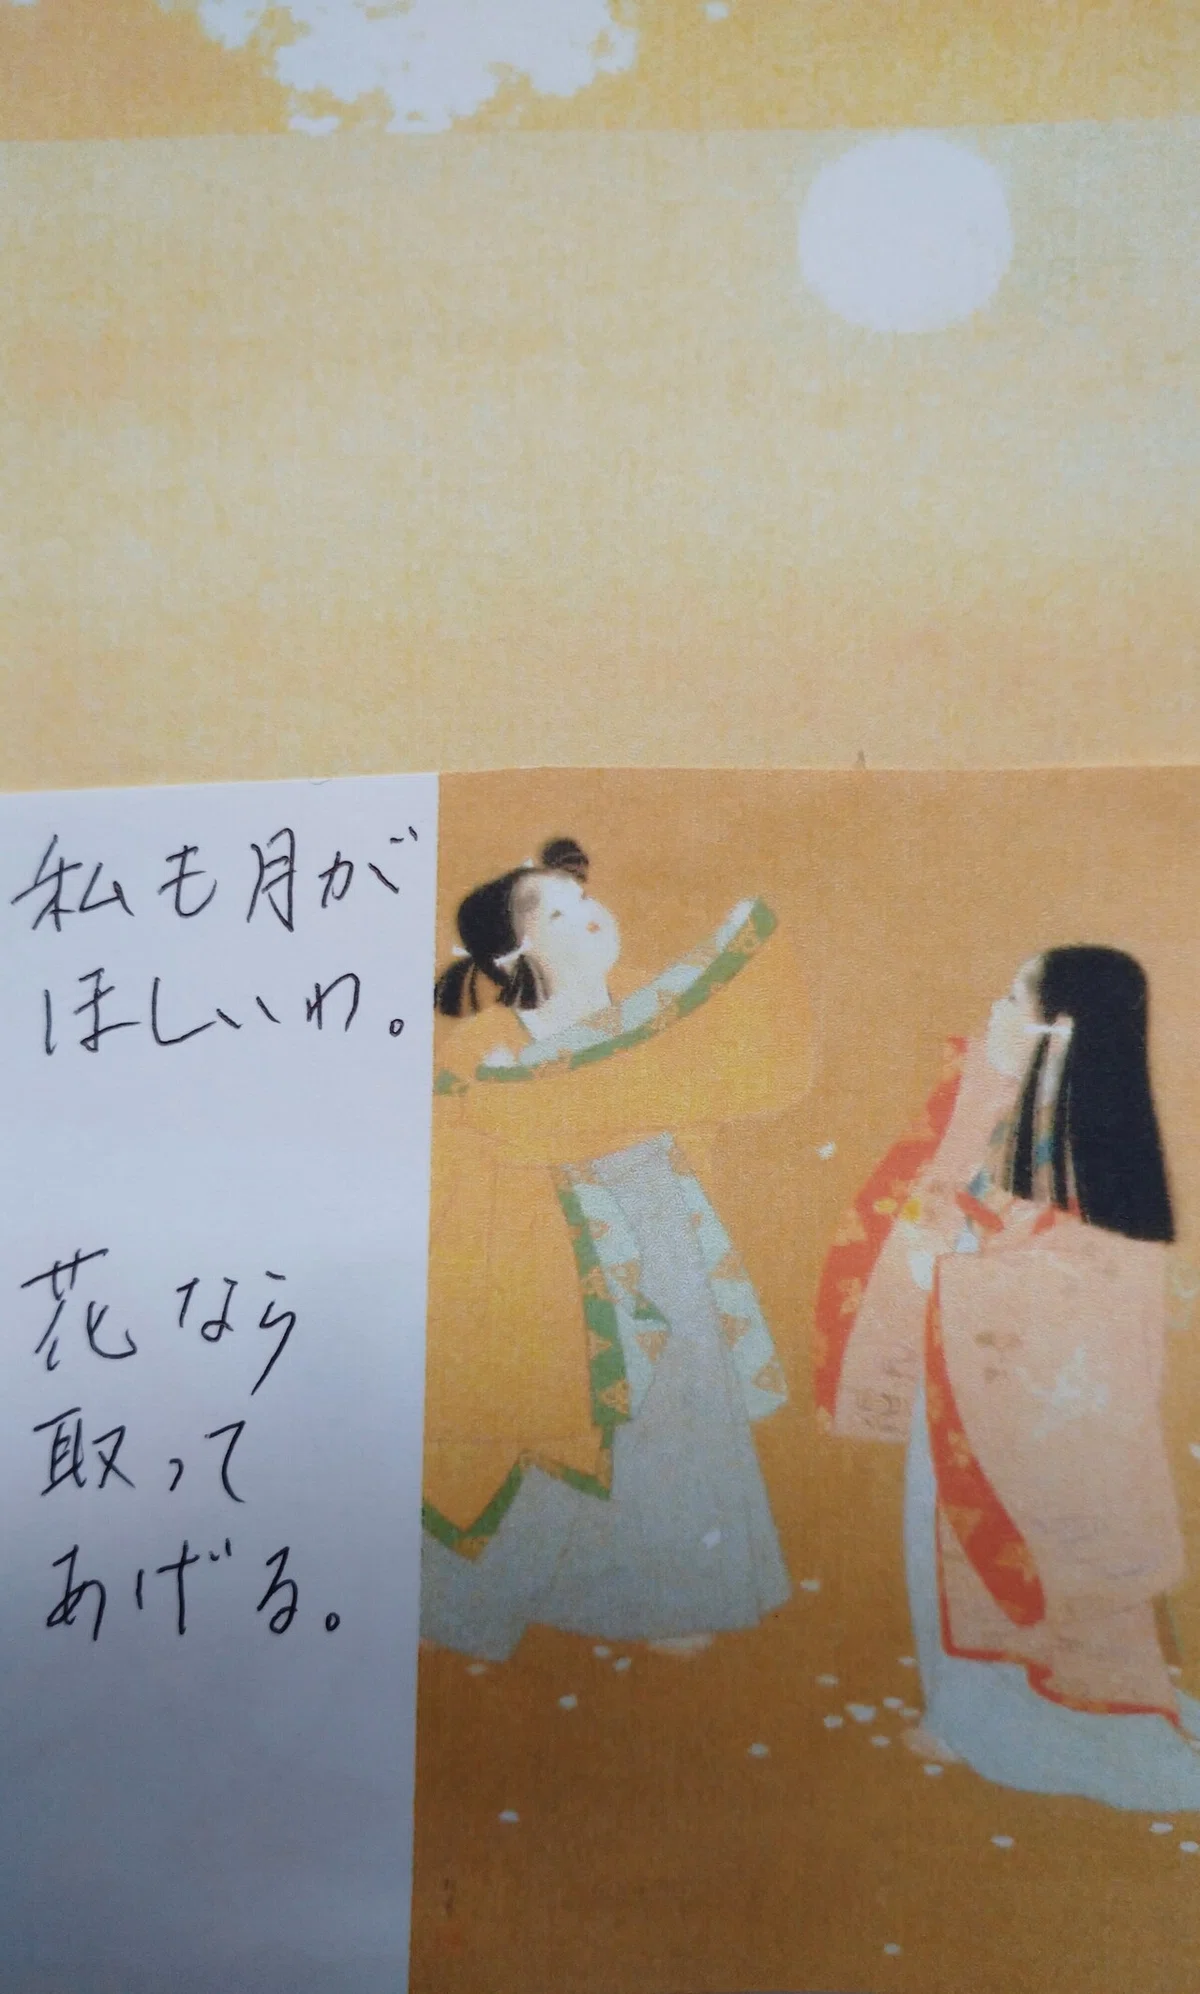 私も月が
ほしいわ。
花なら
取って
あげる。